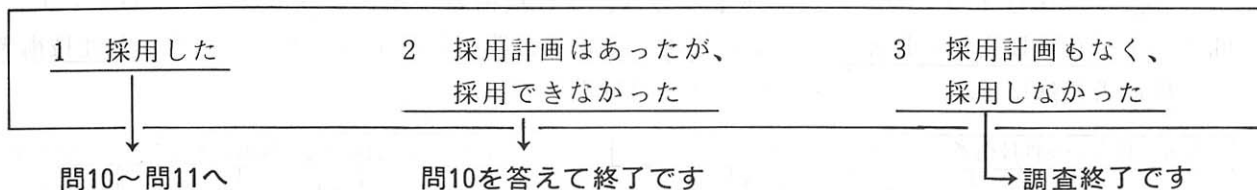 1 採用した
2 採用計画はあったが、
採用できなかった
3 採用計画もなく、
採用しなかった
問10～問11へ
問10を答えて終了です
調査終了です